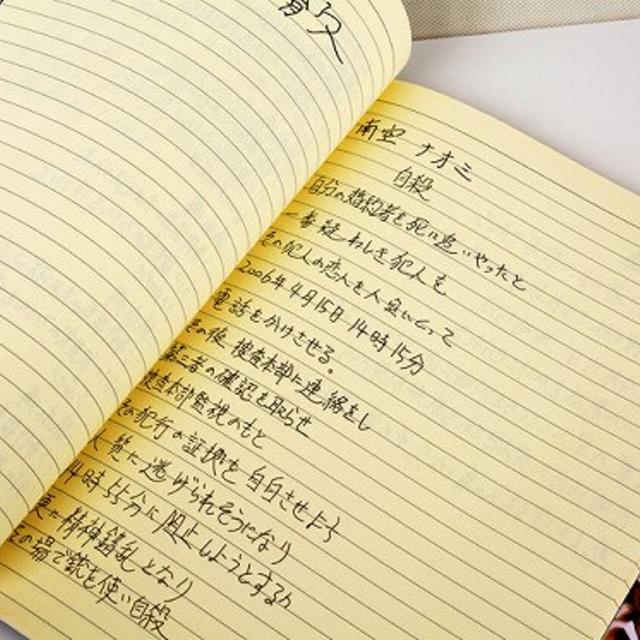 南空 ナオミ
自殺
自分の婚約者を死に追いやったと
一番疑わしき犯人を
の犯人の恋人を人質にとって
2006年4月15日14時15分
電話をかけさせる。
の後、捜査本部に連絡をし
第三者の確認を取らせ
捜査本部監視のもと
の犯行の証拠を自白させよう
人者に逃げられそうになり
4時55分に阻止しようとするが
精神錯乱となり
の場で銃を使い自殺